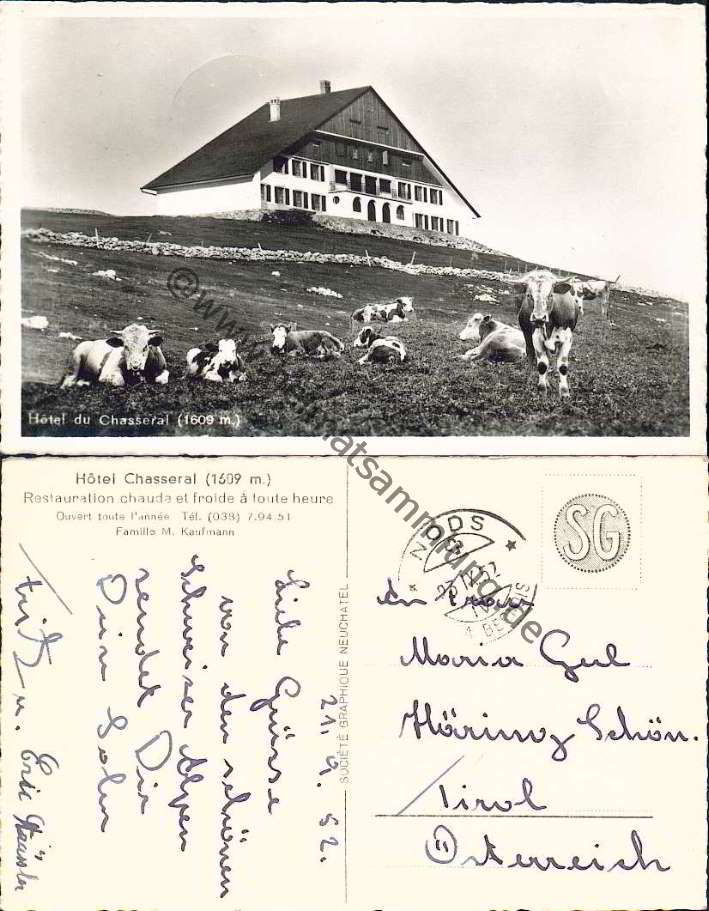 Hôtel du Chasseral (1609 m.)
Hôtel Chasseral (1609 m.)
Restauration chaude et froide à toute heure
Ouvert toute l'année Tél. (038) 7.94.51
Famille M. Kaufmann
21. 9. 52.
Liebe Grüsse
von den schönen
Schweizer Alpen
sendet Dir
Dein Sohn
Fritz u. Eric
SOCIÉTÉ GRAPHIQUE NEUCHATEL
NODS
SG
An Frau
Maria Gul
Häring Schön.
Tirol
Österreich